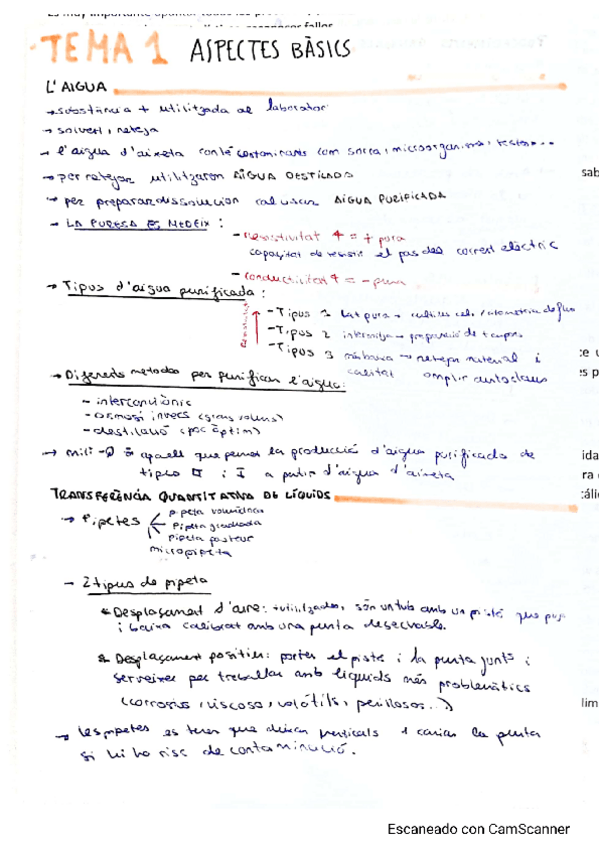 TEMA 1 ASPECTES BÀSICS
L'AIGUA
→ substància + utilitzada al laboratori
→ solvent, neteja
→ l'aigua d'aixeta conté contaminants com sorra, microorganismes, restes...
→ per netejar utilitzarem AIGUA DESTILADA
→ per preparar dissolucion cal usar AIGUA PURIFICADA
→ LA PURESA ES MEDEIX :
- resistivitat ↑ = + pura
capacitat de resistir el pas del corrent elèctric
- conductivitat ↑ = - pura
→ Tipus d'aigua purificada :
- Tipus 1 → cultius cel.
- Tipus 2 → preparació de tampons
- Tipus 3 més baixa → netejar material i
qualitat omplir autoclaus
→ Diferents metodes per purificar l'aigua:
- intercanvi iònic
- osmosi inversa (grans volums)
- destilació (poc òptim)
→ mili-Q és aparell que permet la producció d'aigua purificada de
tipus II i I a partir d'aigua d'aixeta
TRANSFERÈNCIA QUANTITATIVA DE LÍQUIDS
→ Pipetes
pipeta volumètrica
Pipeta graduada
Pipeta pasteur
micropipeta
- 2 tipus de pipeta
Desplaçament d'aire: + utilitzades, són un tub amb un pistó que puja
i baixa calibrat amb una punta desechable.
Desplaçament positiu: porten el pistó i la punta junts i
serveixen per treballar amb líquids més problemàtics
(corrosius, viscosos, volàtils, perillosos...)
→ Les pipetes es tenen que deixar verticals i canviar la punta
si hi ha risc de contaminució.
Escaneado con CamScanner